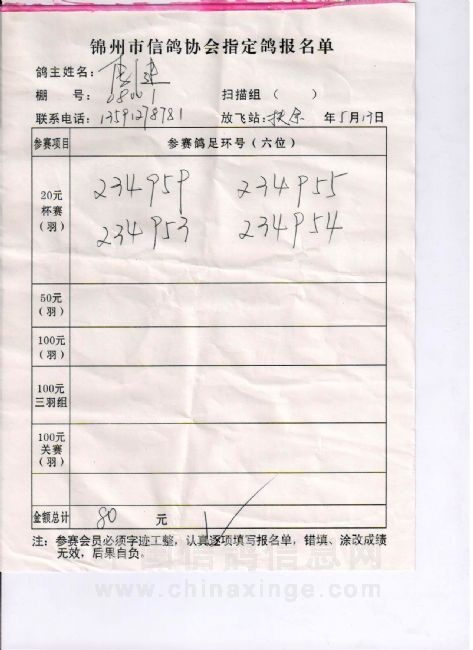 锦州市信鸽协会指定鸽报名单
鸽主姓名：
棚 号： 扫描组（ ）
联系电话：13591278781 放飞站：扶余 年5月17日
参赛项目 参赛鸽足环号（六位）
20元
杯赛
（羽）
234959 234955
234953 234954
50元
（羽）
100元
（羽）
100元
三羽组
100元
关赛
（羽）
金额总计 80 元
注：参赛会员必须字迹工整，认真逐项填写报名单，错填、涂改成绩
无效，后果自负。
中国信鸽信息网
www.chinaxinge.com